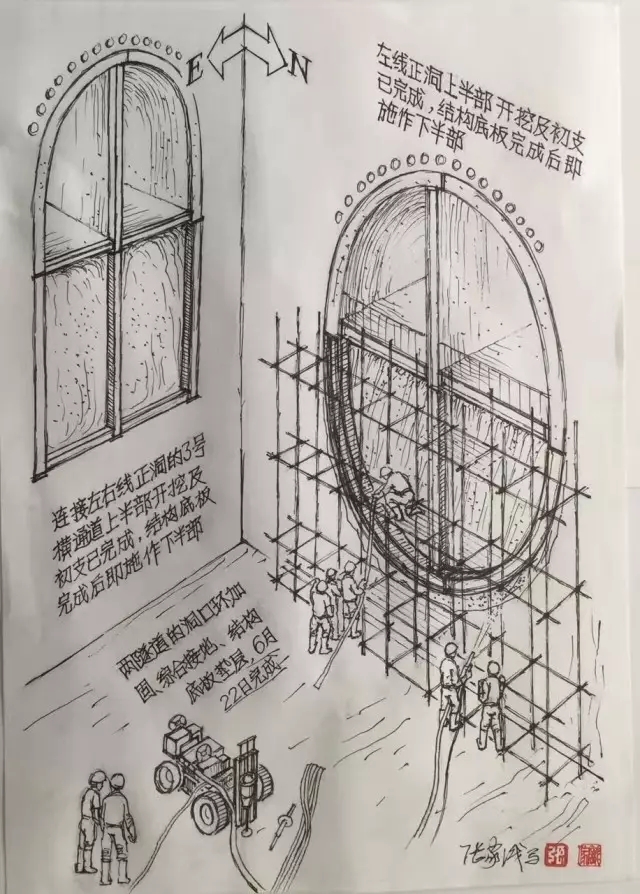 E
N
左线正洞上半部开挖及初支
已完成,结构底板完成后即
施作下半部
连接左右线正洞的3号
横通道上半部开挖及
初支已完成,结构底板
完成后即施作下半部
两隧道的洞口环加
固、综合接地、结构
底板垫层,6月
22日完成
张